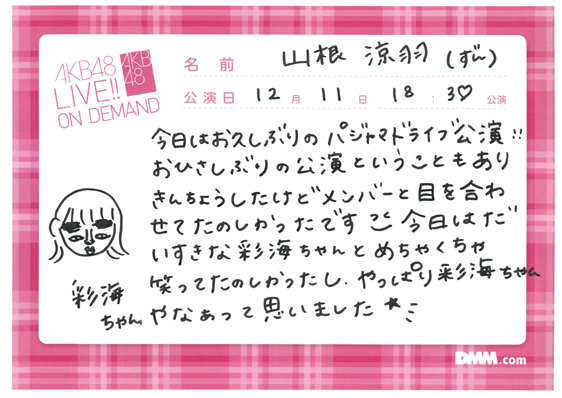 AKB48
LIVE!!
ON DEMAND
AKB
48
名前 山根 涼羽 (ずん)
公演日 12月 11日 18:30 公演
今日はお久しぶりの パジャマドライブ公演!!
おひさしぶりの公演ということもあり
きんちょうしたけどメンバーと目を合わ
せてたのしかったです 今日はだ
いすきな彩海ちゃんとめちゃくちゃ
笑ってたのしかったし、やっぱり彩海ちゃん
やなあって思いました
彩海
ちゃん
DMM.com